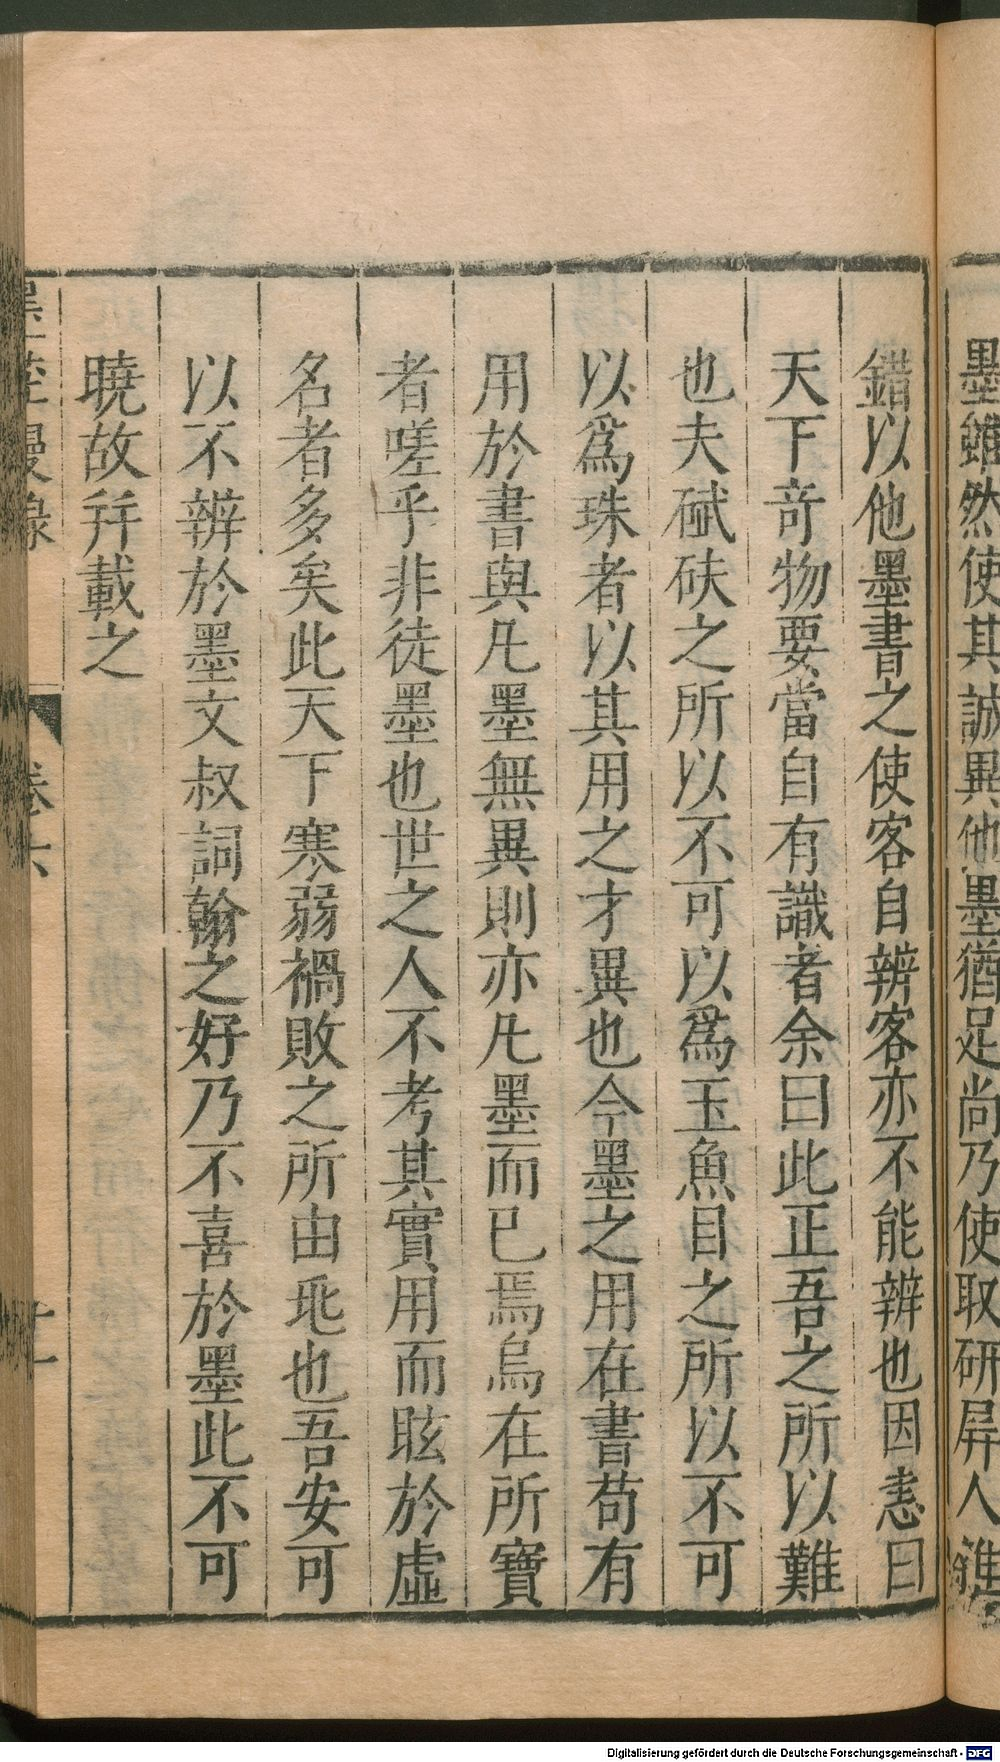 墨雖然使其誠異他墨猶足尚乃使取研屏人雜
錯以他墨書之使客自辨客亦不能辨也因恚曰
天下奇物要當自有識者余曰此正吾之所以難
也夫碔砆之所以不可以為玉魚目之所以不可
以為珠者以其用之才異也今墨之用在書苟有
用於書與凡墨無異則亦凡墨而已焉烏在所寶
者嗟乎非徒墨也世之人不考其實用而眩於虛
名者多矣此天下寒弱禍敗之所由兆也吾安可
以不辨於墨文叔詞翰之好乃不喜於墨此不可
曉故并載之
墨莊漫錄 卷六 十一
Digitalisierung gefördert durch die Deutsche Forschungsgemeinschaft - DFG